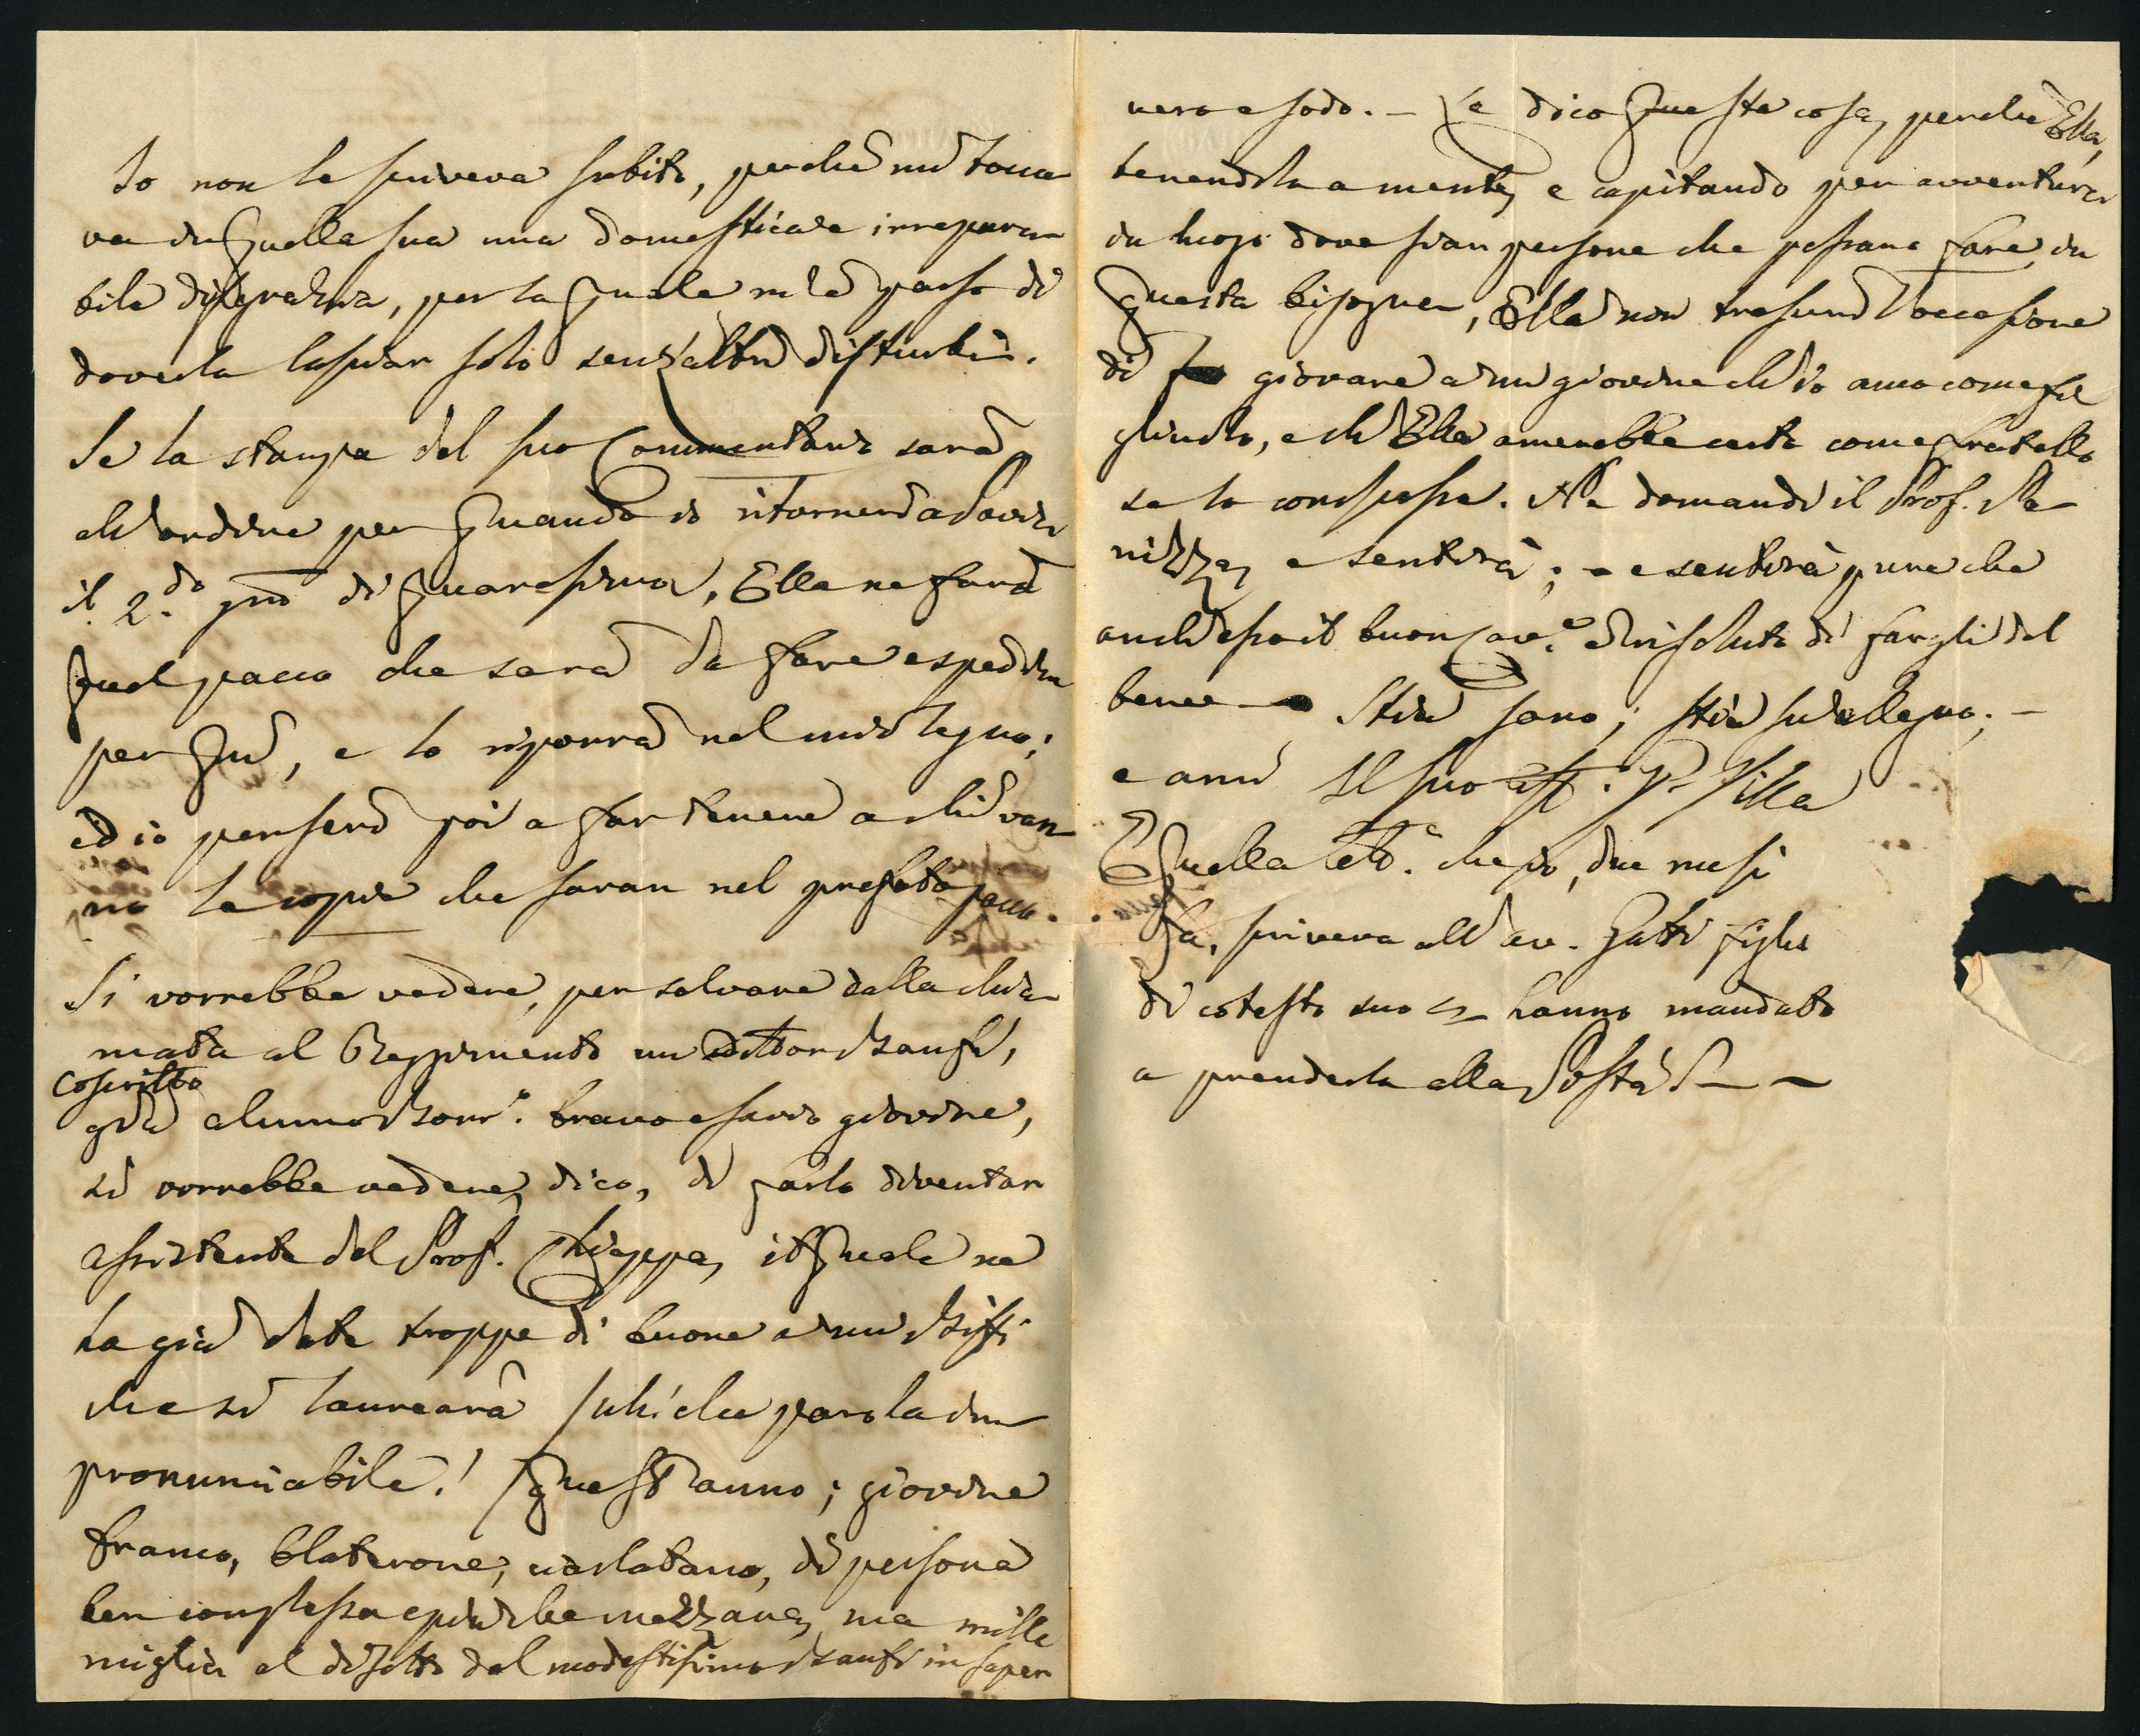 Io non le scriveva subito, perchè mi tocca-
va di quella sua una domesticale irrepara-
bile disgrazia, per la quale m'è parso di
doverla lasciar solo senz'altri disturbi.
Se la stampa del suo Commentario sarà
all'ordine per quando io ritornerò a Pavia
il 2.do gno di quaresima, Ella ne farà
quel pacco che sarà da fare e spedire
per quì, e lo riporrà nel mio legno;
ed io penserò poi a far tenere a chi van-
no le copie che saran nel prefato pacco.
Si vorrebbe vedere, per salvare dalla chia-
mata al Reggimento un dottor Zanfi,
coscritto
già alunno bravo e savio giovine,
si vorrebbe vedere, dico, di farlo diventar
assistente del Prof. Chiappa, il quale ne
ha già date troppe di buone a un
che si laureerà (uh! che parola im-
pronunciabile!) quest'anno; giovine
franco, blaterone, ciarlatano, di persona
ben complessa e più che mezzana, ma mille
miglia al disotto del modestissimo Zanfi in saper
vero e sodo. – Le dico queste cose, perchè Ella,
tenendola a mente, e capitando per avventura
in luogo dove sian persone che possano fare in
questa bisogna, Ella non trascuri l'occasione
di giovare a un giovine ch'io amo come fi-
gliuolo, e ch'Ella amerebbe certo come fratello
se lo conoscesse. Ne domandi il Prof. Pa-
nizza, e sentirà; – e sentirà pure che
anch'esso il buon Cav.e è risoluto di fargli del
bene – Stia sano; stia su allegro; –
e ami Il suo aff. P. Villa
Quella lett.a che io, due mesi
fa, scriveva all'av. Gatti figlio
di cotesto suo hanno mandato
a prenderla alla Posta? – –